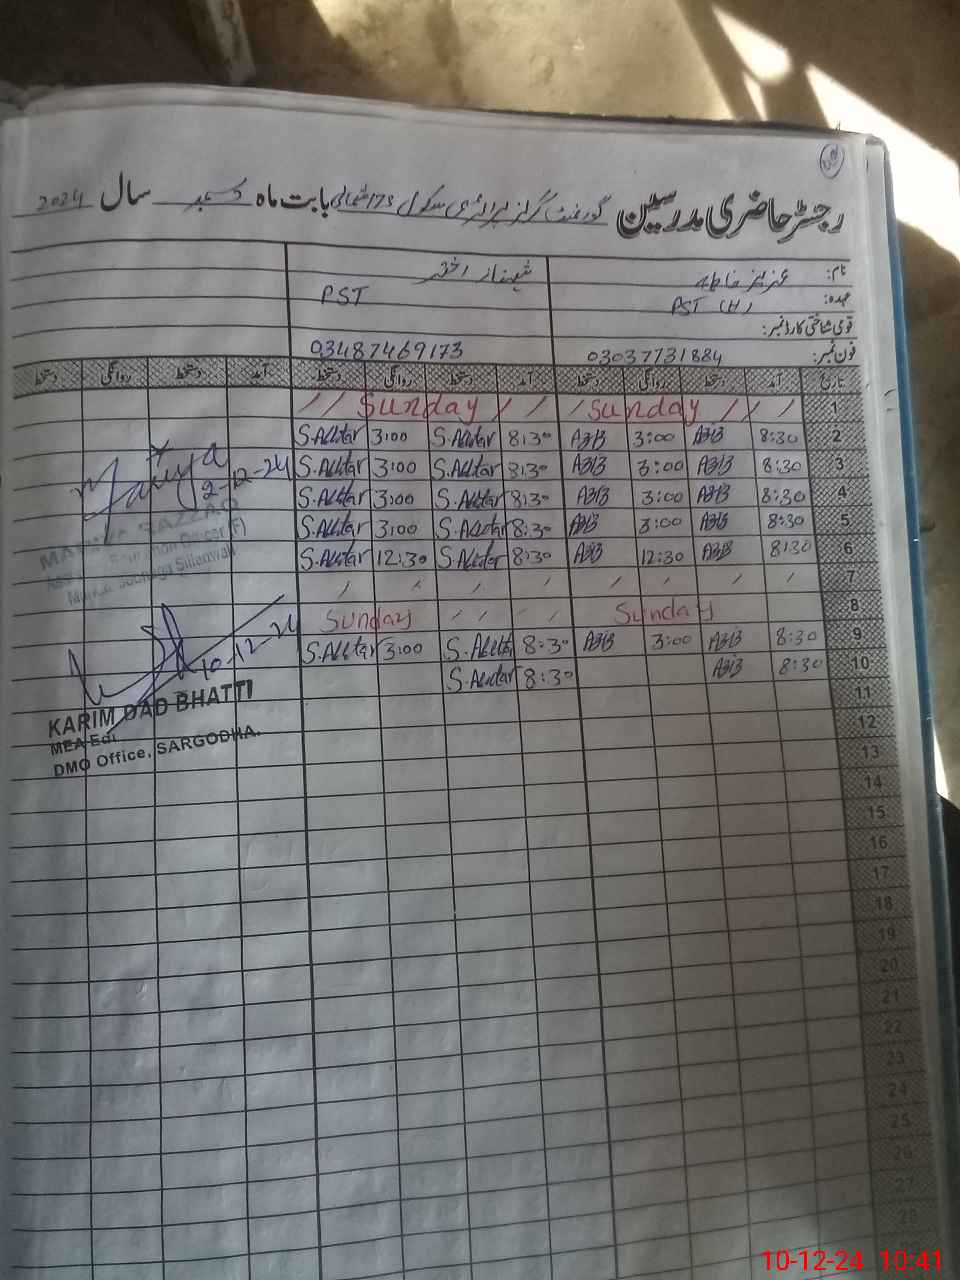 رجسٹر حاضری مدرسین گورنمنٹ گرلز پرائمری سکول 173 شمالی بابت ماہ دسمبر سال 2024
نام: عزیز فاطمہ شہناز اختر
عہدہ: PST (H) PST
قومی شناختی کارڈ نمبر:
فون نمبر: 03037731884 03487469173
تاریخ آمد دستخط روانگی دستخط آمد دستخط روانگی دستخط آمد دستخط روانگی دستخط
1 / / Sunday / / / Sunday / /
2 8:30 3:00 8:30 S.Akhtar 3:00 S.Akhtar
3 8:30 3:00 8:30 S.Akhtar 3:00 S.Akhtar
4 8:30 3:00 8:30 S.Akhtar 3:00 S.Akhtar
5 8:30 3:00 8:30 S.Akhtar 3:00 S.Akhtar
6 8:30 12:30 8:30 S.Akhtar 12:30 S.Akhtar
7 / / / / / / / /
8 Sunday / / / Sunday
9 8:30 3:00 8:30 S.Akhtar 3:00 S.Akhtar
10 8:30 8:30 S.Akhtar
11
12
13
14
15
16
17
18
19
20
21
22
23
24
25
26
27
28
Mariya
2-12-24
Education Officer (F)
Sillanwali
10-12-24
KARIM DAD BHATTI
MEA Edu
DMO Office, SARGODHA.
10-12-24 10:41